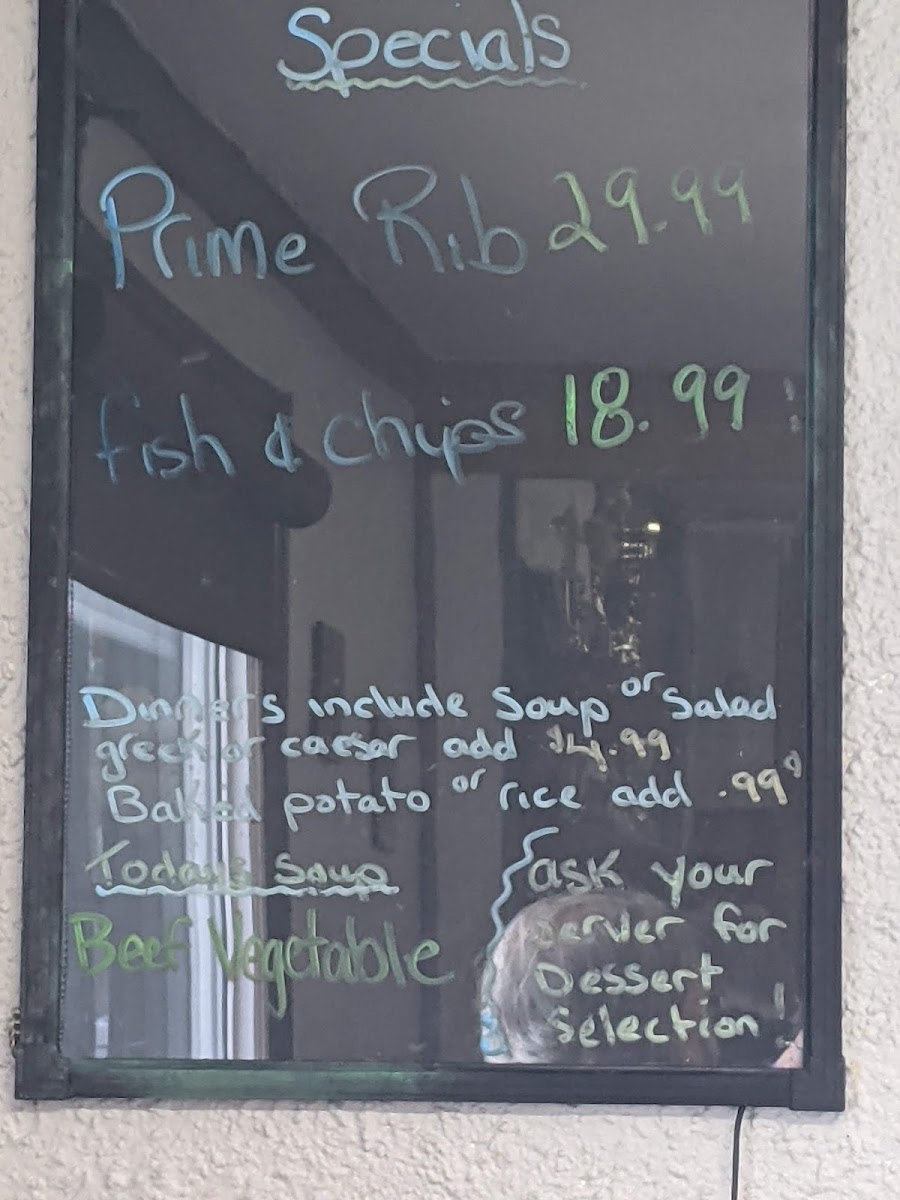 Specials
Prime Rib 29.99
fish & chips 18.99
Dinners include soup or salad
greek or caesar add $4.99
Baked potato or rice add .99¢
Todays Soup
Beef Vegetable
ask your
server for
Dessert
selection!